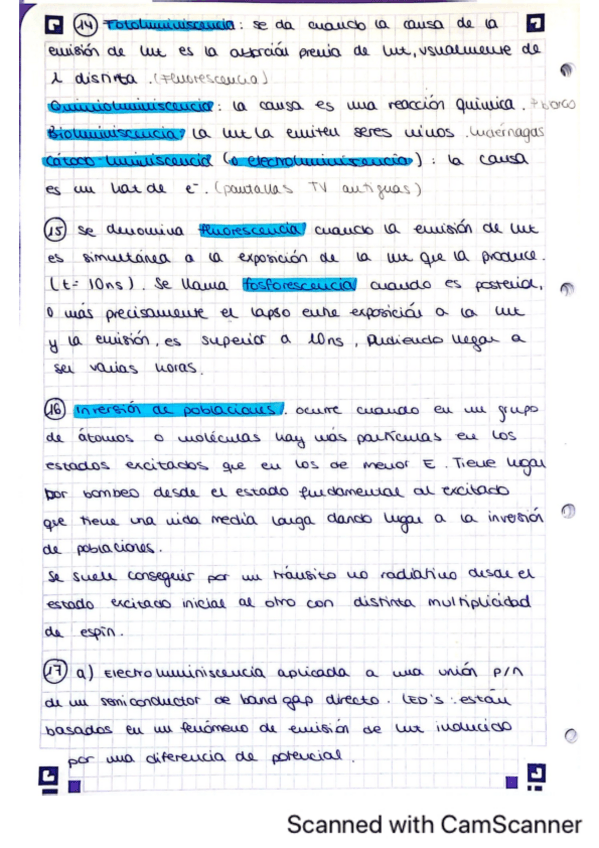 (14) Fotoluminiscencia: se da cuando la causa de la
emisión de luz es la absorción previa de luz, usualmente de
λ distinta. (Fluorescencia)
Quimioluminiscencia: la causa es una reacción química.
Bioluminiscencia: la luz la emiten seres vivos. Luciérnagas
Cátodo-luminiscencia (o electroluminiscencia): la causa
es un haz de e⁻. (pantallas TV antiguas)
(15) Se denomina fluorescencia cuando la emisión de luz
es simultánea a la exposición de la luz que la produce.
(t= 10ns). Se llama fosforescencia cuando es posterior,
o más precisamente el lapso entre exposición a la luz
y la emisión, es superior a 10ns, pudiendo llegar a
ser varias horas.
(16) Inversión de poblaciones. ocurre cuando en un grupo
de átomos o moléculas hay más partículas en los
estados excitados que en los de menor E. Tiene lugar
por bombeo desde el estado fundamental al excitado
que tiene una vida media larga dando lugar a la inversión
de poblaciones.
Se suele conseguir por un tránsito no radiativo desde el
estado excitado inicial al otro con distinta multiplicidad
de espín.
(17) a) Electroluminiscencia aplicada a una unión p/n
de un semiconductor de band gap directo. LED's: están
basados en un fenómeno de emisión de luz inducido
por una diferencia de potencial.
Scanned with CamScanner